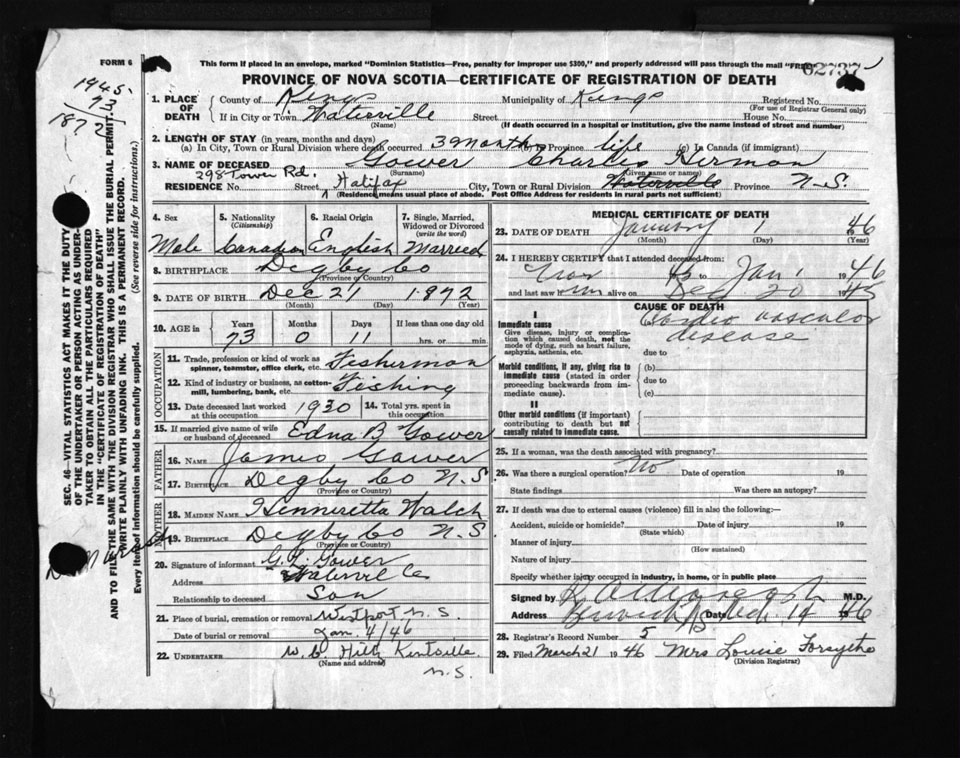 FORM 6
This form if placed in an envelope, marked "Dominion Statistics—Free, penalty for improper use $300," and properly addressed will pass through the mail "FREE"
62737
PROVINCE OF NOVA SCOTIA—CERTIFICATE OF REGISTRATION OF DEATH
1945
73
1872
1. PLACE OF DEATH
County of Kings Municipality of Kings Registered No.
(For use of Registrar General only)
If in City or Town Waterville Street House No.
(Name) (If death occurred in a hospital or institution, give the name instead of street and number)
2. LENGTH OF STAY (in years, months and days)
(a) In City, Town or Rural Division where death occurred 3 Months (b) In Province life (c) In Canada (if immigrant)
3. NAME OF DECEASED Gower Charles Herman
(Surname) (Given name or names)
298 Tower Rd.
RESIDENCE No. Street Halifax City, Town or Rural Division Waterville Province N.S.
(Residence means usual place of abode. Post Office Address for residents in rural parts not sufficient)
4. Sex
Male
5. Nationality
(Citizenship)
Canadian
6. Racial Origin
English
7. Single, Married, Widowed or Divorced
(write the word)
Married
8. BIRTHPLACE Degby Co
(Province or Country)
9. DATE OF BIRTH Dec 21 1892
(Month) (Day) (Year)
10. AGE in Years Months Days If less than one day old
73 0 11 hrs. or min.
OCCUPATION
11. Trade, profession or kind of work as spinner, teamster, office clerk, etc. Fisherman
12. Kind of industry or business, as cotton-mill, lumbering, bank, etc. Fishing
13. Date deceased last worked at this occupation 1930 14. Total yrs. spent in this occupation
15. If married give name of wife or husband of deceased Edna B Gower
FATHER
16. NAME James Gower
17. BIRTHPLACE Degby Co N.S
(Province or Country)
MOTHER
18. MAIDEN NAME Hennieretta Walch
19. BIRTHPLACE Degby Co N.S
(Province or Country)
20. Signature of informant G. L. Gower
Address
Relationship to deceased Son
21. Place of burial, cremation or removal Westport N.S.
Date of burial or removal Jan. 4/46
22. UNDERTAKER
(Name and address)
N.S.
MEDICAL CERTIFICATE OF DEATH
23. DATE OF DEATH January 1 1946
(Month) (Day) (Year)
24. I HEREBY CERTIFY that I attended deceased from:
to Jan 1 1946
and last saw him alive on Dec 20 1945
CAUSE OF DEATH
I
Immediate cause
Give disease, injury or complication which caused death, not the mode of dying, such as heart failure, asphyxia, asthenia, etc.
Cardio vascular
disease
due to
Morbid conditions, if any, giving rise to immediate cause (stated in order proceeding backwards from immediate cause).
(b)
due to
(c)
II
Other morbid conditions (if important) contributing to death but not causally related to immediate cause.
25. If a woman, was the death associated with pregnancy?
26. Was there a surgical operation? No Date of operation 19
State findings Was there an autopsy?
27. If death was due to external causes (violence) fill in also the following:—
Accident, suicide or homicide? Date of injury 19
(State which)
Manner of injury
(How sustained)
Nature of injury
Specify whether injury occurred in industry, in home, or in public place
Signed by M.D.
Address Date 14 1946
28. Registrar's Record Number 5
29. Filed March 21 1946 Mrs Louise Forsythe
(Division Registrar)
SEC. 46—VITAL STATISTICS ACT MAKES IT THE DUTY
OF THE UNDERTAKER OR PERSON ACTING AS UNDER-
TAKER TO OBTAIN ALL THE PARTICULARS REQUIRED
IN THE "CERTIFICATE OF REGISTRATION OF DEATH"
AND TO FILE THE SAME WITH THE DIVISION REGISTRAR WHO SHALL ISSUE THE BURIAL PERMIT.
WRITE PLAINLY WITH UNFADING INK. THIS IS A PERMANENT RECORD.
Every item of information should be carefully supplied. (See reverse side for instructions.)